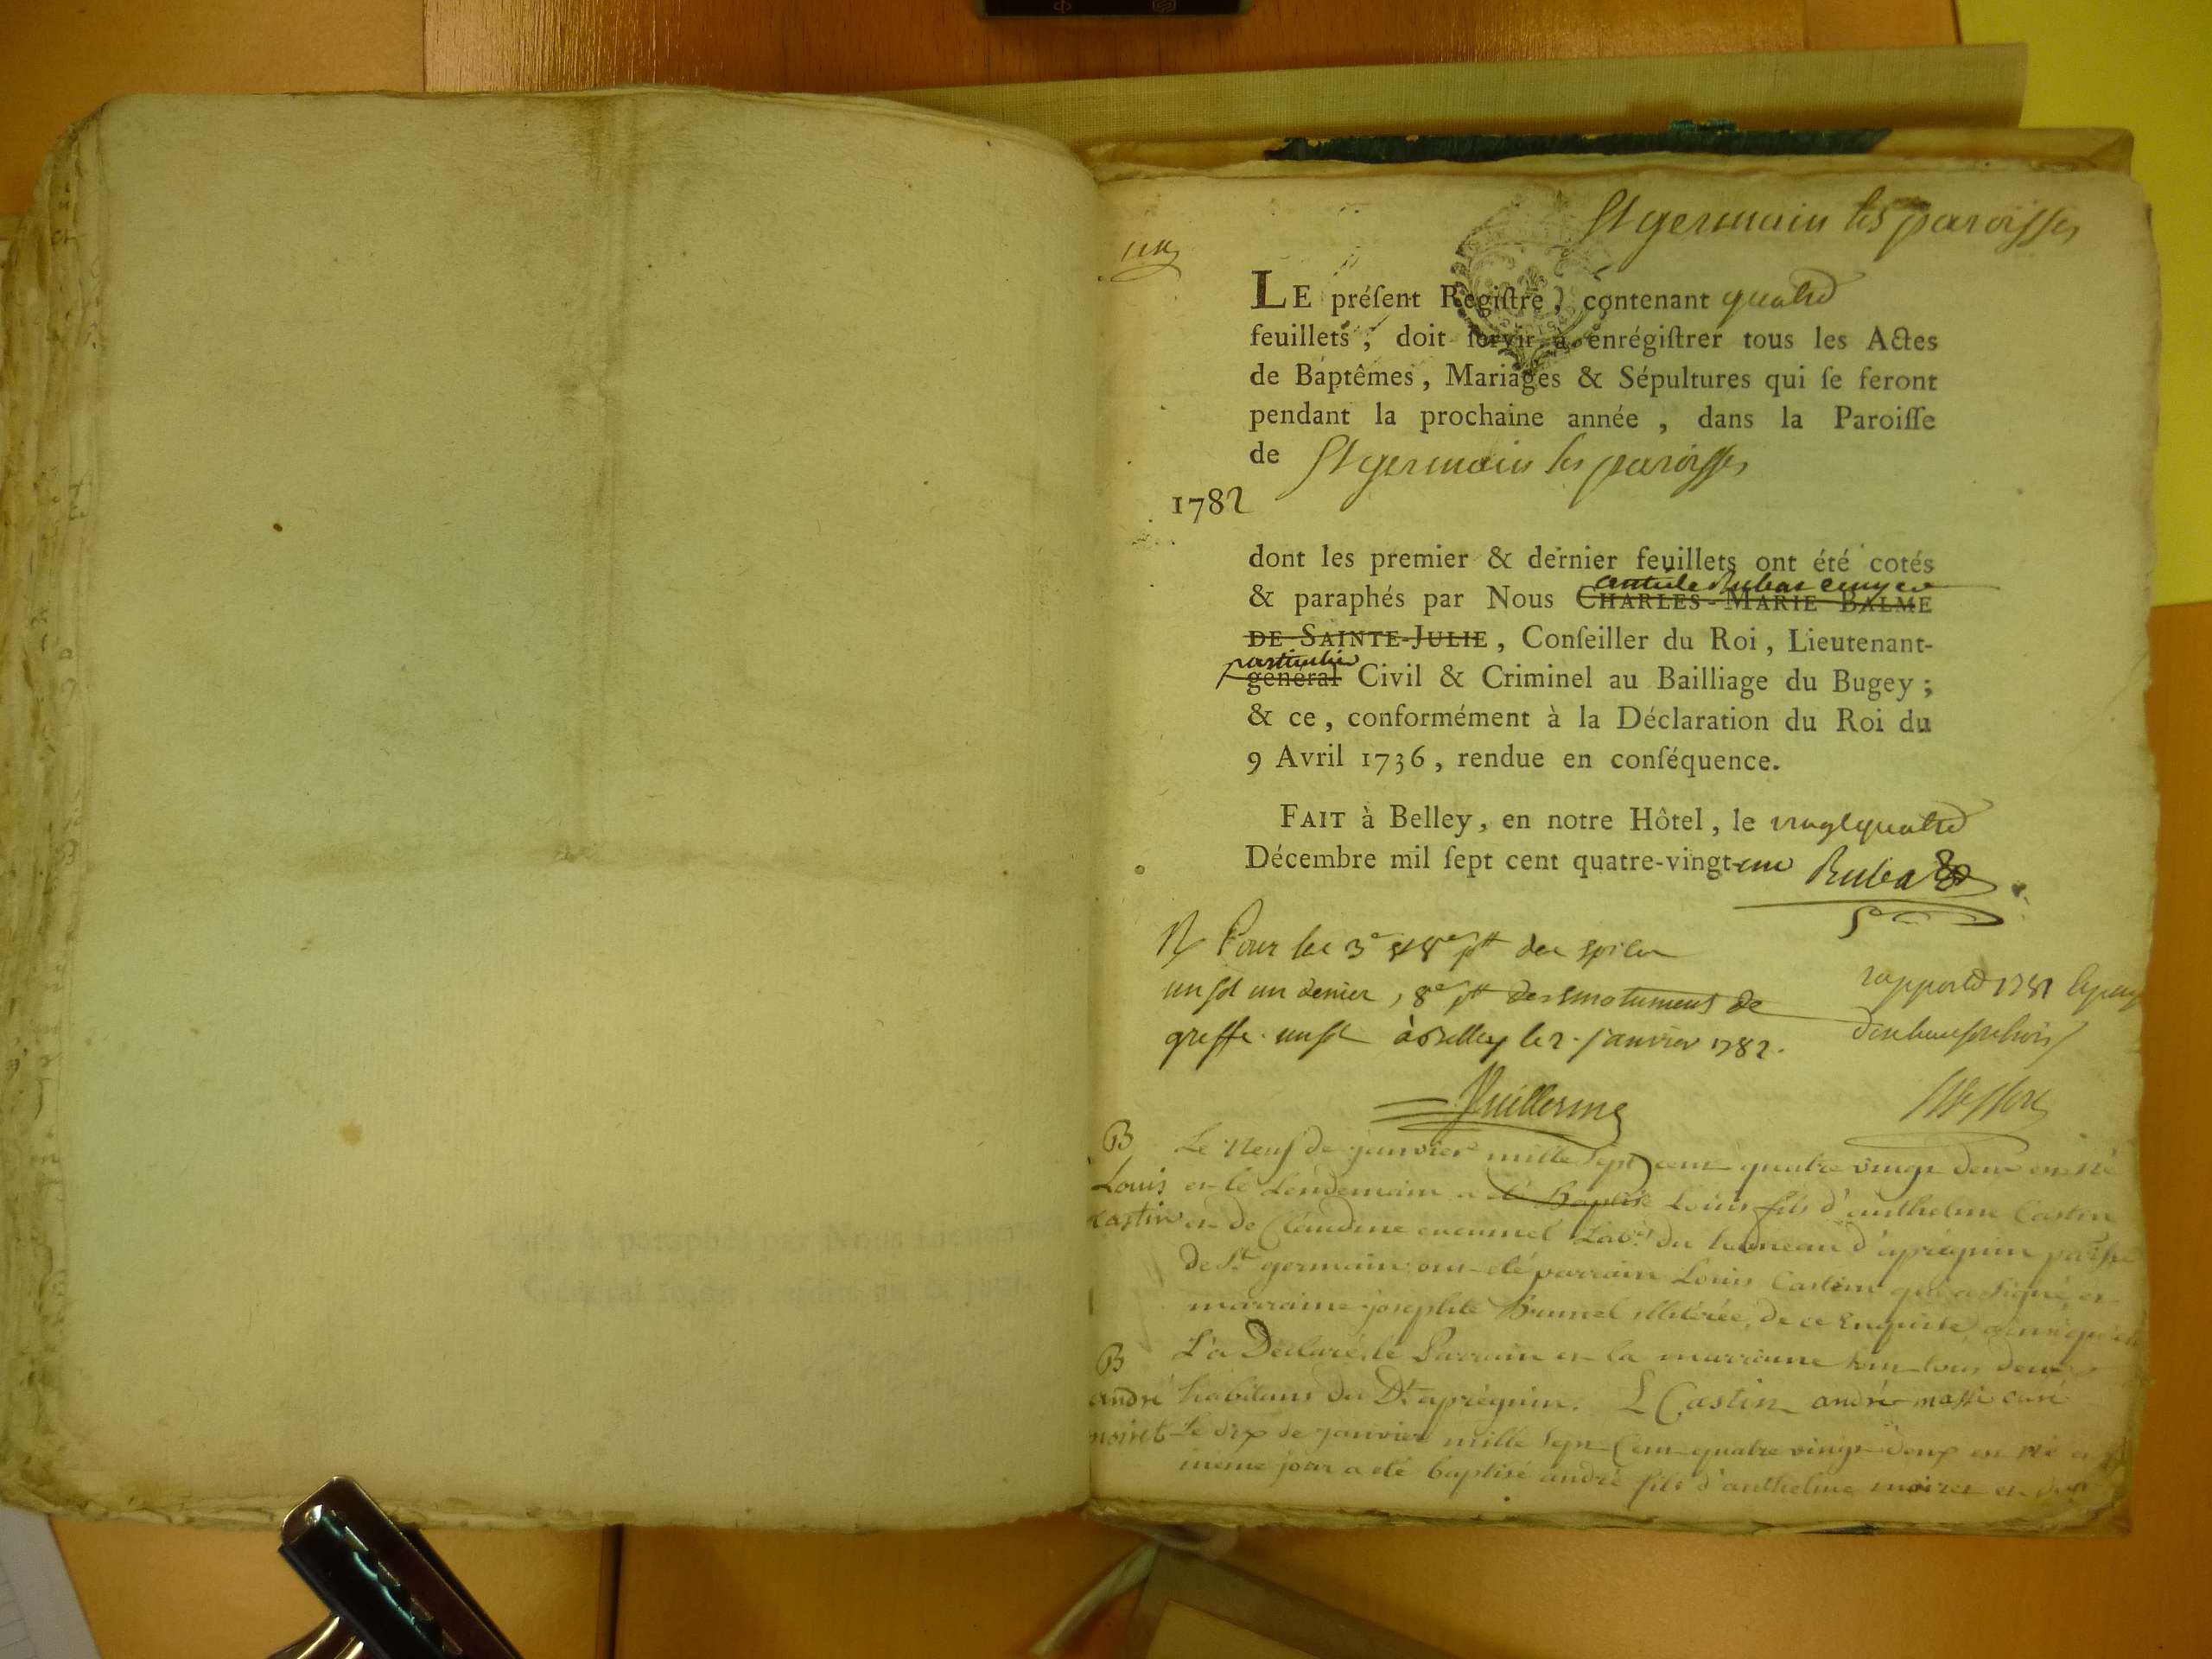 St germain les paroisses
LE préſent Regiſtre, contenant quatre
feuillets, doit ſervir à enrégiſtrer tous les Actes
de Baptêmes, Mariages & Sépultures qui ſe feront
pendant la prochaine année, dans la Paroiſſe
de St germain les paroisses
1782
dont les premier & dernier feuillets ont été cotés
& paraphés par Nous CHARLES-MARIE BALME
DE SAINTE-JULIE, Conſeiller du Roi, Lieutenant-
particulier
général Civil & Criminel au Bailliage du Bugey;
& ce, conformément à la Déclaration du Roi du
9 Avril 1736, rendue en conſéquence.
FAIT à Belley, en notre Hôtel, le vingt quatre
Décembre mil ſept cent quatre-vingt-un Rubat
Pour les 3e
un sol un denier, 8e des emoluments de
greffe un sol à Belley le 2 janvier 1782.
rapporté 1781
Vuillerme
B
Louis
castin
Le neuf de janvier mille sept cent quatre vingt deux est né
et le Lendemain a été Baptisé Louis fils d'anthelme Castin
et de Claudine Labrs du hameau d'aprégnin
de St germain ont été parrain Louis Castin qui a signé, et
marraine josephte Brunel illitérée, de ce Enquise, ainsi qu'elle
L'a Declaré, le Parrain et la marraine sont tous deux
habitans du Dt aprégnin. L Castin andré massé curé
B
andré
moiret
Le dix de janvier mille Sept Cent quatre vingt deux est né
même jour a été baptisé andré fils d'anthelme moiret et